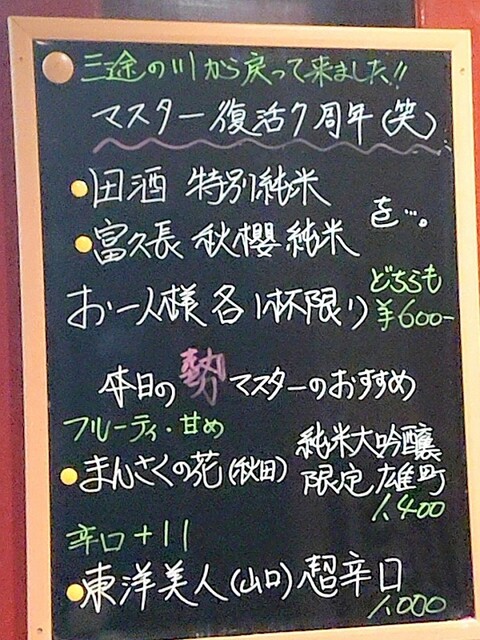 三途の川から戻って来ました!!
マスター復活7周年(笑)
田酒 特別純米
富久長 秋櫻 純米
を…。
お一人様 各1杯限り
どちらも
¥600-
本日の勢マスターのおすすめ
フルーティ・甘め
まんさくの花(秋田)
純米大吟醸
限定 雄町
1.400
辛口+11
東洋美人(山口)超辛口
1.000